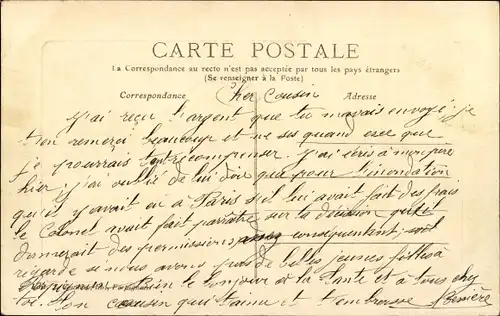 CARTE POSTALE
La Correspondance au recto n'est pas acceptée par tous les pays étrangers
(Se renseigner à la Poste)
Correspondance Adresse
Cher Cousin
J'ai reçu l'argent que tu m'avais envoyé je
t'en remerci beaucoup et ne sès quand esce que
je pourrais te récompenser. J'ai écris à mon père
hier; j'ai oublié de lui dire que pour l'inondation
qu'il y avait eu à Paris s'il lui avait fait des frais
le Colonel avait fait paraître sur la décision qu'il
donnerait des permissions conséquentent
regarde si nous avons pas de belles jeunes filles à
bien le bonjour à la Tante et à tous chez
toi. Ton cousin qui t'aime et t'embrasse